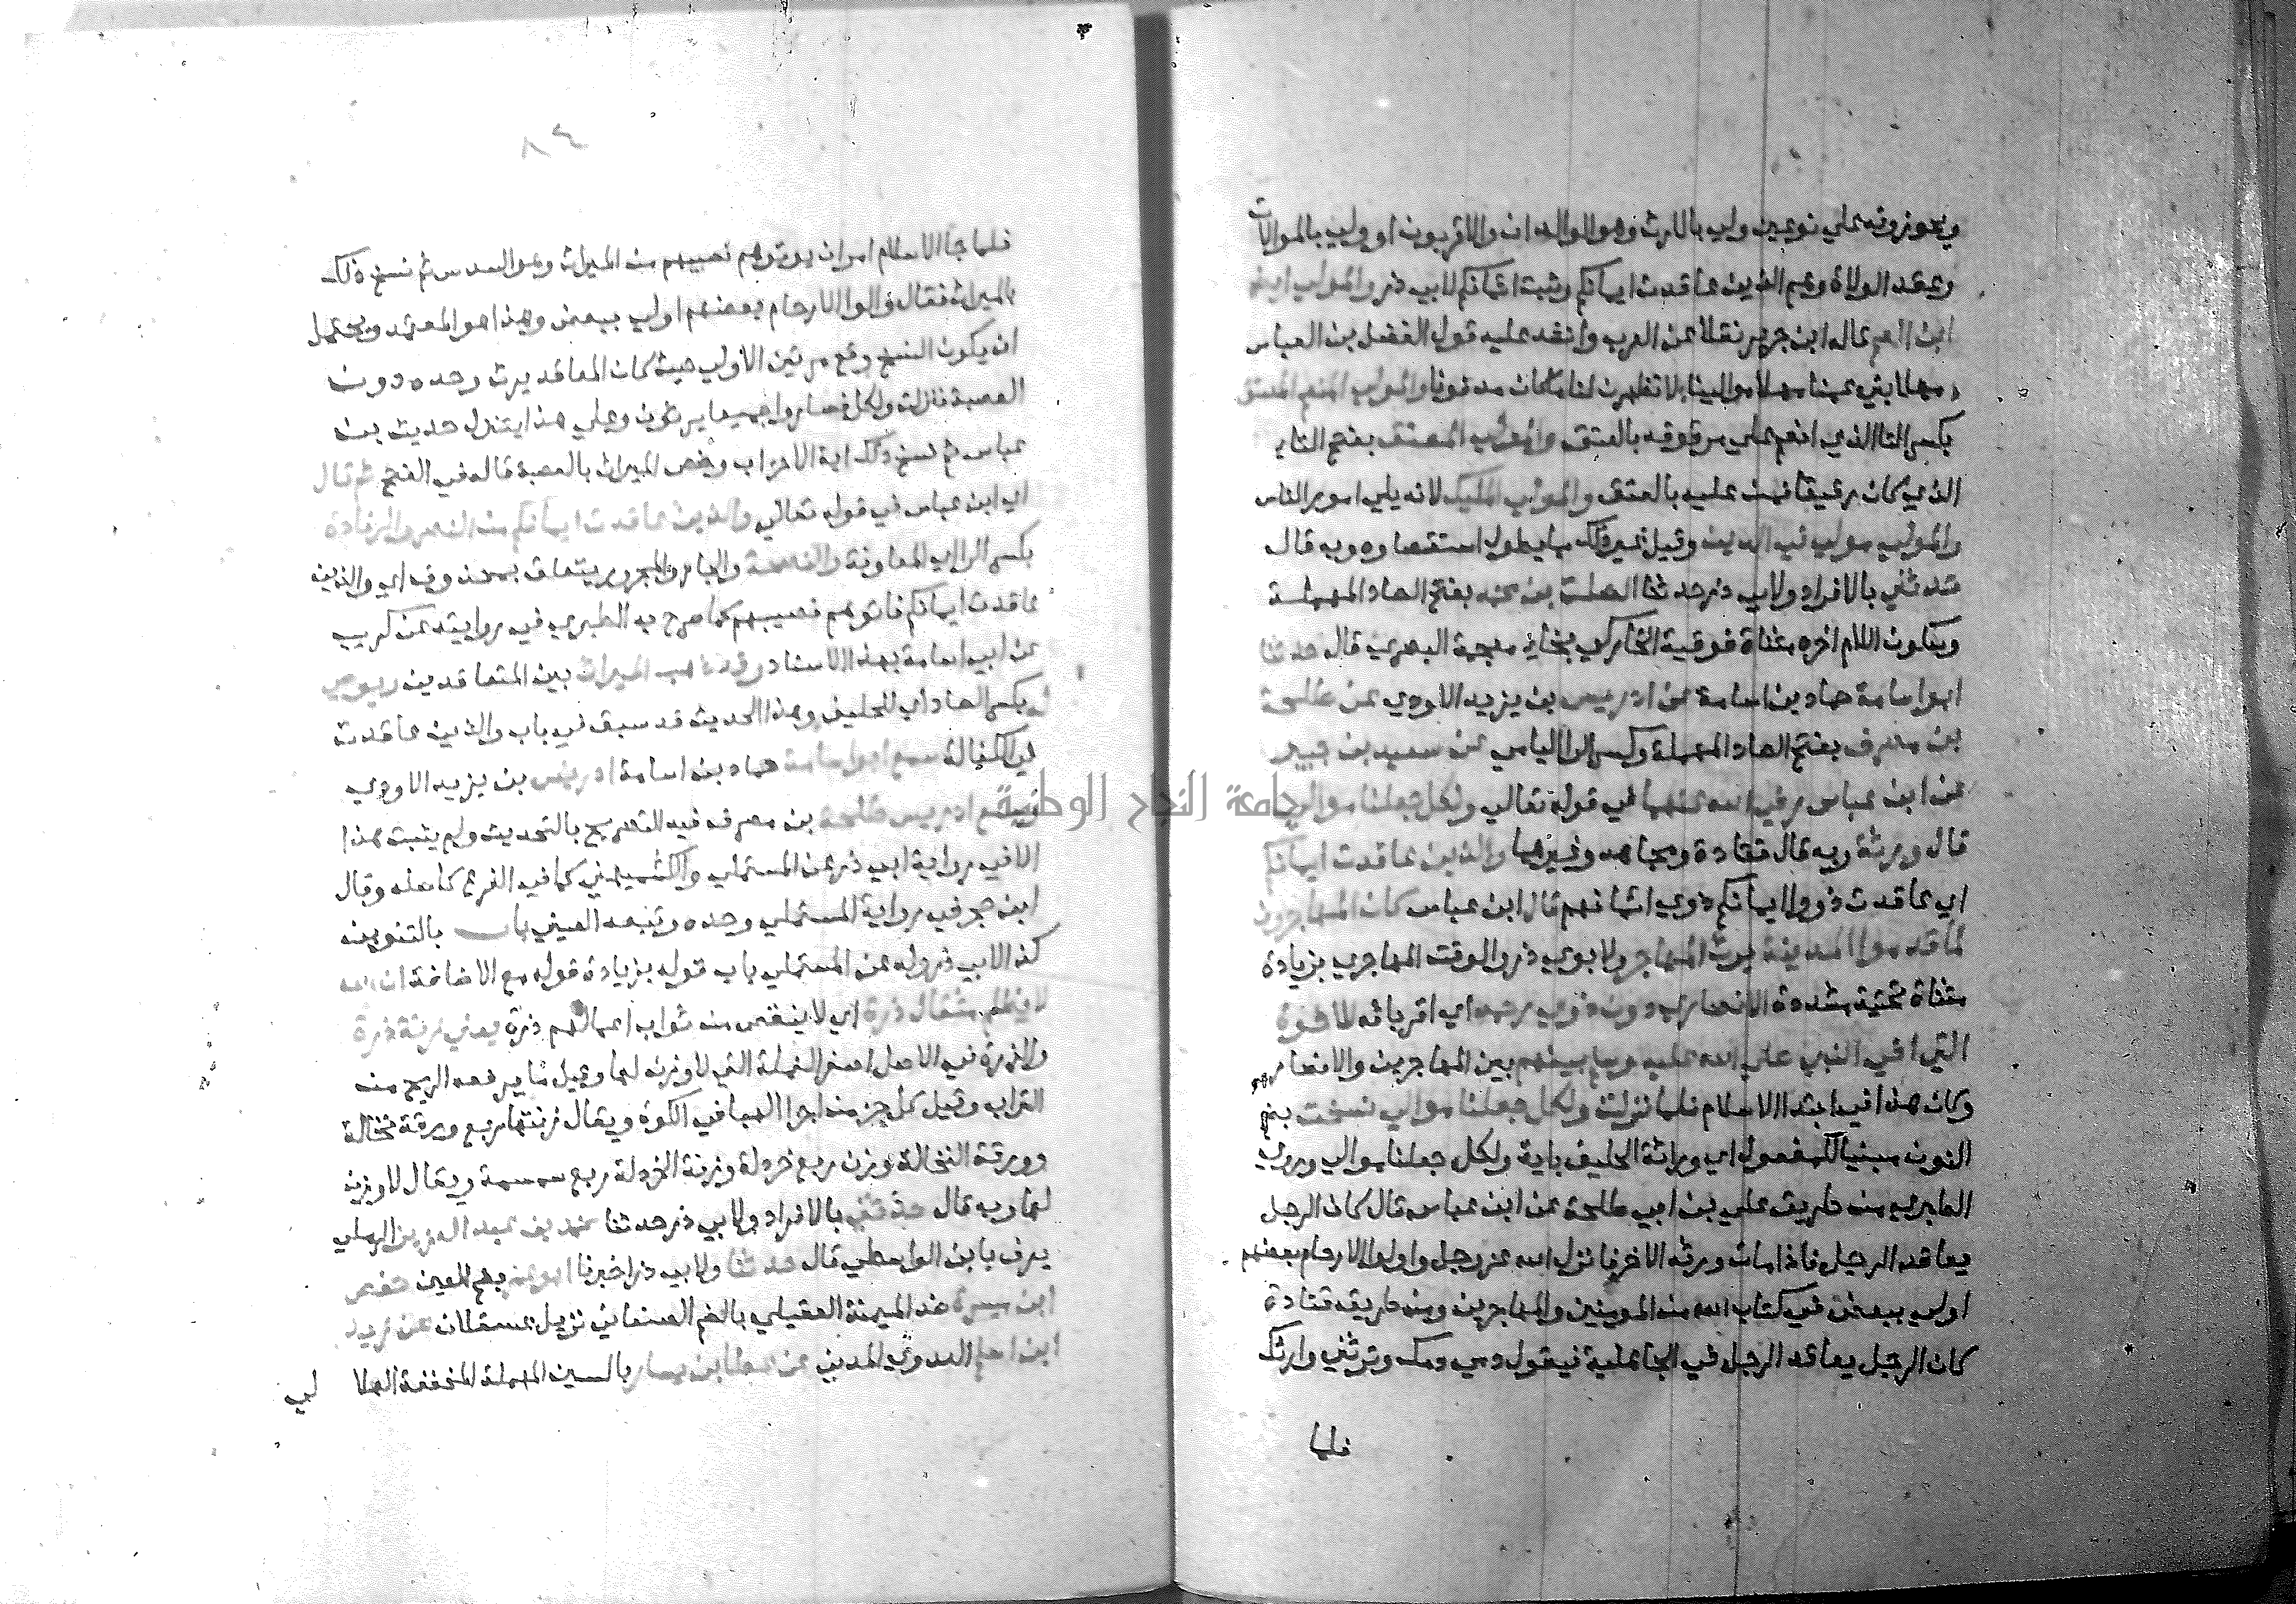 ويحوزونه علي نوعين ولي بالارث وهو الوالدان والاقربون او ولي بالموالات
وعقد الولاة وهم الذين عاقدت ايمانكم وثبت ايمانكم لابي ذر والمولي ايضا
ابن العم قاله ابن جرير نقلا عن العرب وانشد عليه قول الفضل بن العباس
مهلا بني عمنا مهلا موالينا لا تظهرن لنا ما كان مدفونا والمولي المنعم المعتق
بكسر التا الذي انعم علي مرقوقه بالعتق والمولي المعتق بفتح التاء
الذي كان رقيقا فمن عليه بالعتق والمولي المليك لانه يلي امور الناس
والمولي مولي في الدين وقيل غير ذلك مما يطول استقصاوه وبه قال
حدثني بالافراد ولابي ذر حدثنا الصلت بن محمد بفتح الصاد المهملة
وسكون اللام اخره مثناة فوقية الخاركي بخاء معجمة البصري قال حدثنا
ابو اسامة حماد بن اسامة عن ادريس بن يزيد الاودي عن طلحة
بن مصرف بفتح الصاد المهملة وكسر الرا اليامي عن سعيد بن جبير
عن ابن عباس رضي الله عنهما في قوله تعالي ولكل جعلنا موالي
قال ورثة وبه قال قتادة ومجاهد وغيرهما والذين عاقدت ايمانكم
اي عاقدت ذوو الايمانكم ذوي ايمانهم قال ابن عباس كان المهاجرون
لما قدموا المدينة يرث المهاجر ولابوي ذر والوقت المهاجري بزيادة
مثناة تحتية مشددة الانصاري دون ذوي رحمه اي اقربائه للاخوة
التي اخي النبي صلي الله عليه وسلم بينهم بين المهاجرين والانصار
وكان هذا في ابتدا الاسلام فلما نزلت ولكل جعلنا موالي نسخت بضم
النون مبنيا للمفعول اي وراثة الحليف باية ولكل جعلنا موالي وروي
الطبري من طريق علي بن ابي طلحة عن ابن عباس قال كان الرجل
يعاقد الرجل فاذا مات ورثه الاخر فانزل الله عز وجل واولوا الارحام بعضهم
اولي ببعض في كتاب الله من المومنين والمهاجرين ومن طريق قتادة
كان الرجل يعاقد الرجل في الجاهلية فيقول دمي دمك وترثني وارثك
فلما
٨٤
فلما جا الاسلام امروا ان يوتوهم نصيبهم من الميراث وهو السدس ثم نسخ ذلك
بالميراث فقال واولوا الارحام بعضهم اولي ببعض وهذا هو المعتمد ويحتمل
ان يكون النسخ وقع مرتين الاولي حيث كان المعاقد يرث وحده دون
العصبة فنزلت ولكل فصاروا جميعا يرثون وعلي هذا يتنزل حديث بن
عباس ثم نسخ ذلك اية الاحزاب وخص الميراث بالعصبة قاله في الفتح ثم قال
اي ابن عباس في قوله تعالي والذين عاقدت ايمانكم من النصر والرفادة
بكسر الرا اي المعاونة والنصيحة والجار والمجرور يتعلق بمحذوف اي والذين
عاقدت ايمانكم فاتوهم نصيبهم كما صرح به الطبري في روايته عن كريب
عن ابي اسامة بهذا الاسناد وقد ذهب الميراث بين المتعاقدين ويوصي
له بكسر الصاد اي للحليف وهذا الحديث قد سبق في باب والذين عاقدت
في الكفالة سمع ابو اسامة حماد بن اسامة ادريس بن يزيد الاودي
وسمع ادريس طلحة بن مصرف فيه التصريح بالتحديث ولم يثبت هذا
الا في رواية ابي ذر عن المستملي والكشميهني كما في الفرع كاصله وقال
ابن حجر في رواية المستملي وحده وتبعه العيني باب بالتنوين
كذا لابي ذر وله عن المستملي باب قوله بزيادة قوله مع الاضافة ان الله
لا يظلم مثقال ذرة اي لا ينقص من ثواب اعمالهم ذرة يعني زنة ذرة
والذرة في الاصل اصغر النملة التي لا وزن لها وقيل ما يرفعه الريح من
التراب وقيل كل جز من اجزا الهبا في الكوة ويقال زنتها ربع ورقة نخالة
وورقة النخالة وزن ربع خردلة وزنة الخردلة ربع سمسمة ويقال لا وزن
لها وبه قال حدثني بالافراد ولابي ذر حدثنا محمد بن عبد العزيز الرملي
يعرف بابن الواسطي قال حدثنا ولابي ذر اخبرنا ابو عمر بضم العين حفص
ابن ميسرة ضد الميمنة العقيلي بالضم الصنعاني نزيل عسقلان عن زيد
ابن اسلم العدوي المدني عن عطا بن يسار بالسين المهملة المخففة الهلا
لي
جامعة النجاح الوطنية